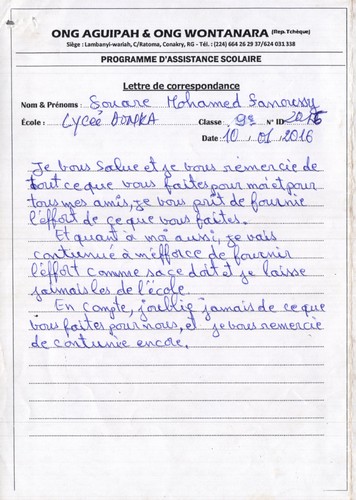 ONG AGUIPAH & ONG WONTANARA (Rep. Tchèque)
Siège : Lambanyi-wariah, C/Ratoma, Conakry, RG - Tél. : (224) 664 26 29 37/624 031 338
PROGRAMME D'ASSISTANCE SCOLAIRE
Lettre de correspondance
Nom & Prénoms : Souare Mohamed Sanoussy
École : Lycée DONKA Classe : 9e N° ID
Date : 10 / 01 / 2016
Je vous salue et je vous remercie de
tout ce que vous faites pour moi et pour
tous mes amis, je vous prit de fournie
l'effort de ce que vous faites.
Et quant à moi aussi, je vais
contunue à m'efforce de fournir
l'effort comme sa ce doit et je laisse
jamais les de l'école.
En compte, j'oublie jamais de ce que
vous faites pour nous, et je vous remercie
de contunie encore.